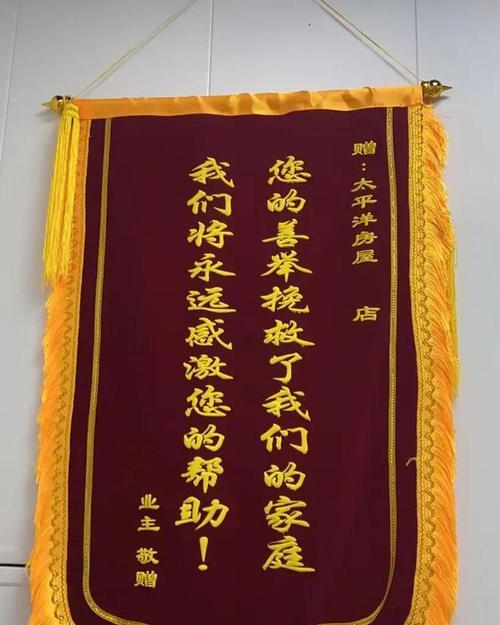 赠：太平洋房屋 店
您的善举挽救了我们的家庭
我们将永远感激您的帮助！
业主 敬赠